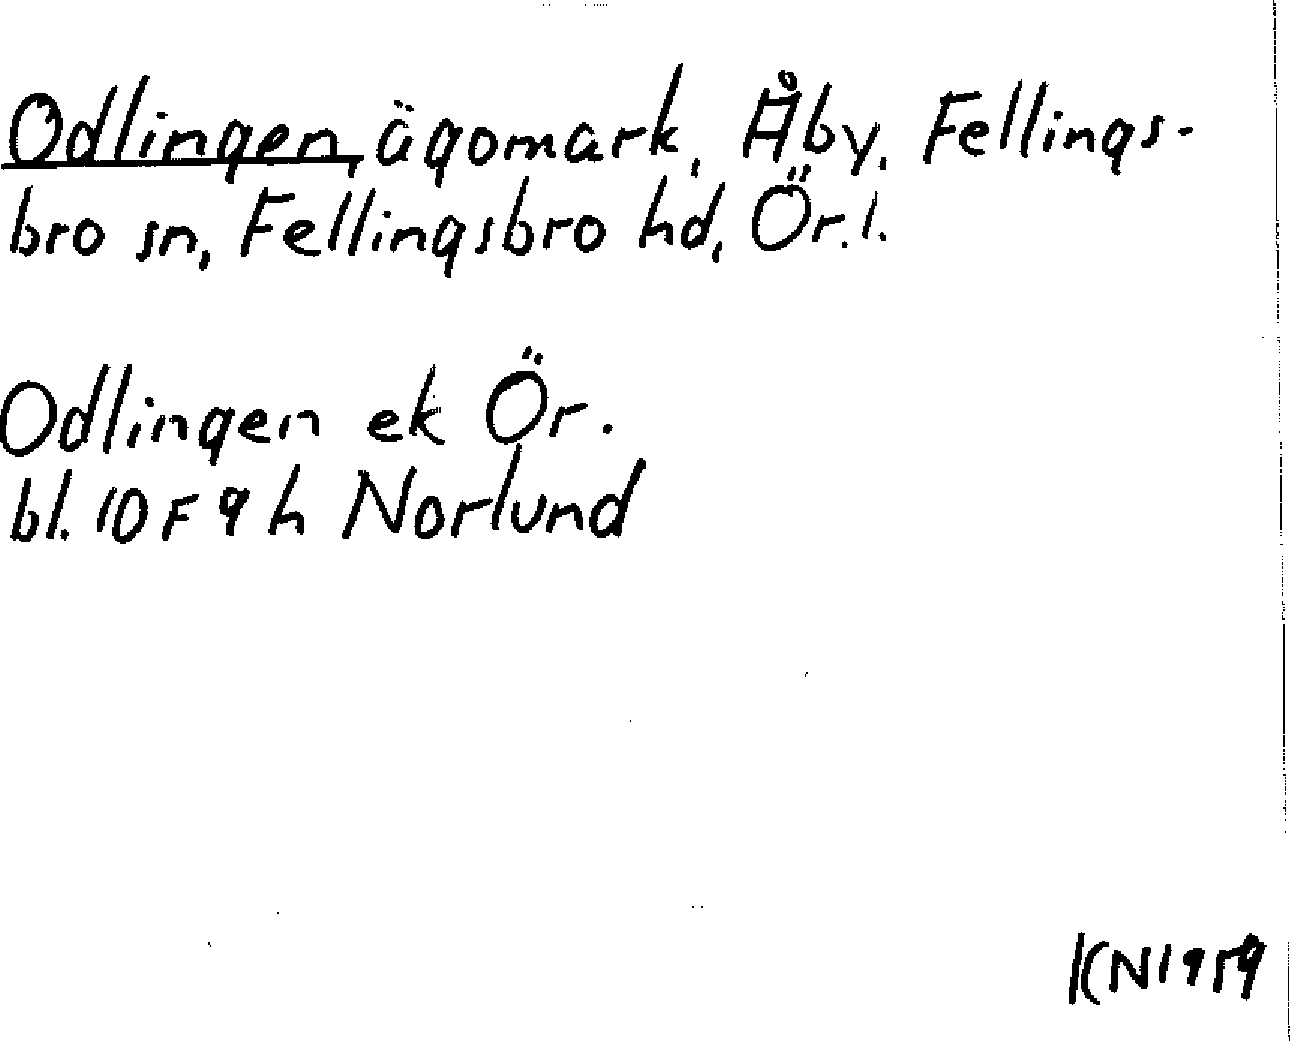 Odlingen, ägomark, Åby, Fellings-
bro sn, Fellingsbro hd, Ör. l.
Odlingen ek Ör.
bl. 10 F 9 h Norlund
KN 1959